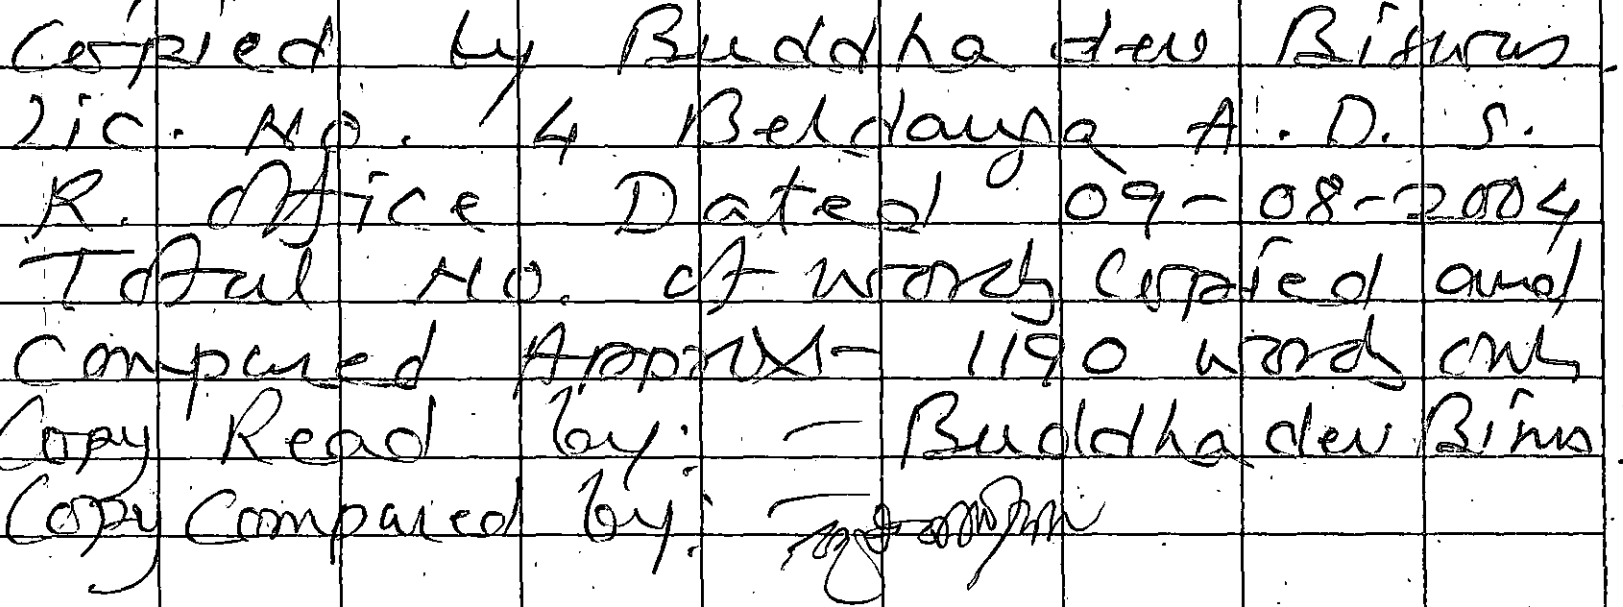 Copied by Buddha dev Biswas.
Lic. No. 14 Beldanga A.D.S.
R. Office Dated 09-08-2004
Total No. of words Copied and
Compared Approx- 1190 words only
Copy Read by: - Buddha dev Biswas.
Copy Compared by: -